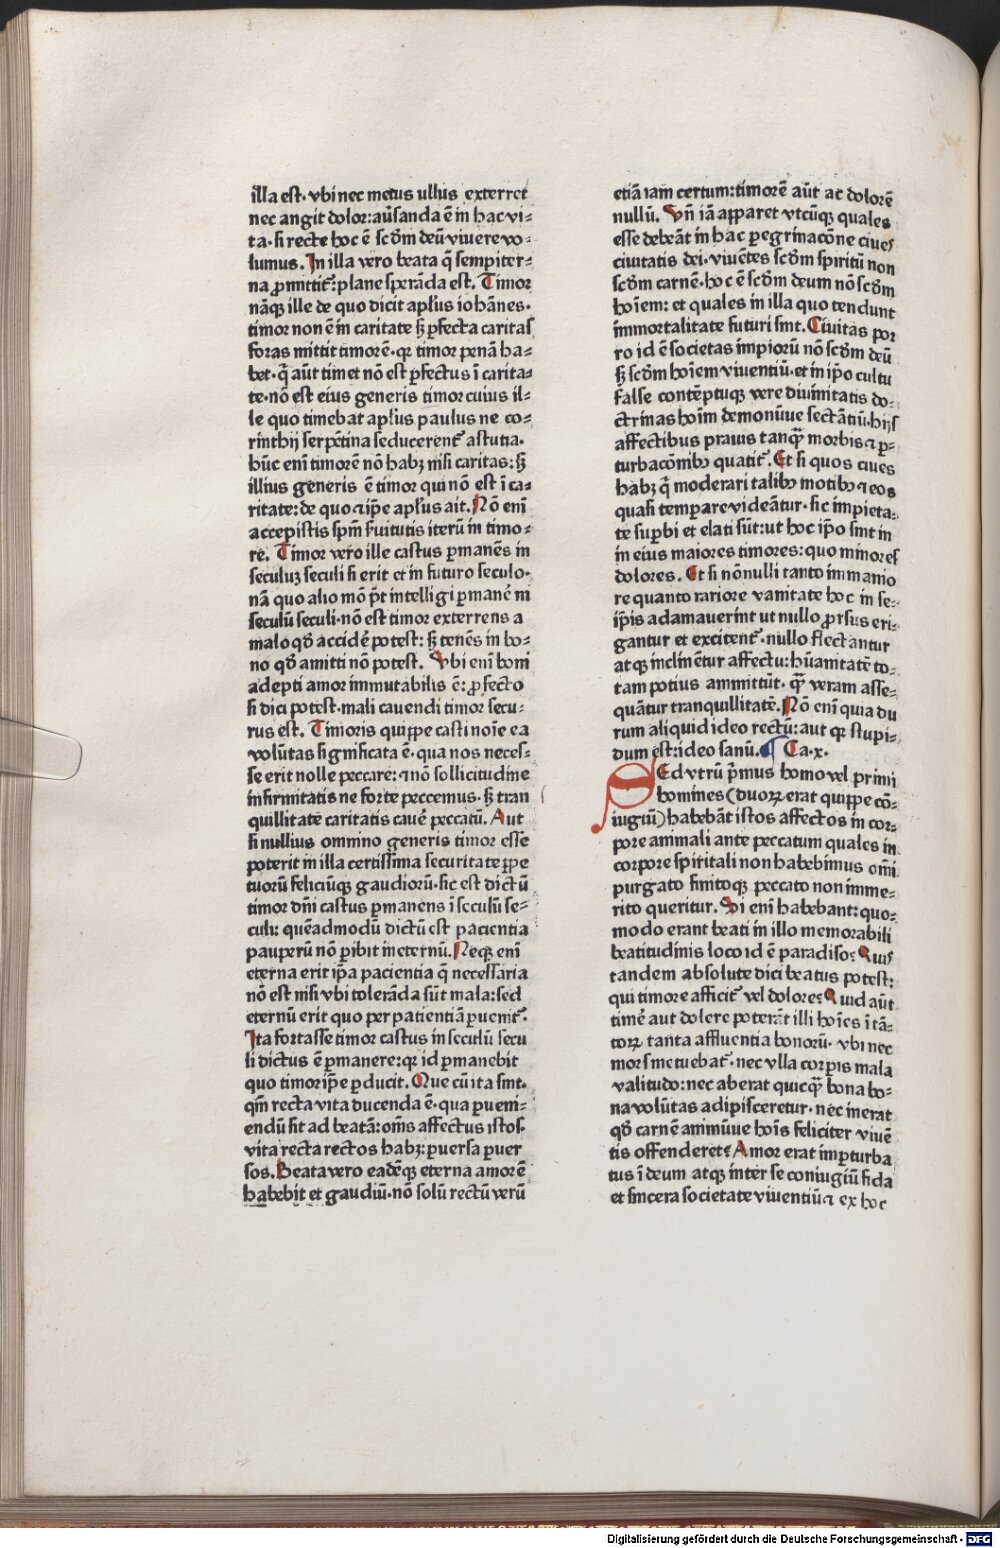 illa est· vbi nec metus ullus exterret
nec angit dolor: aūt sanda ē in hac vi⸗
ta· si recte hoc ē scd̄m deū viuere vo⸗
lumus. In illa vero beata q̄ sempiter⸗
na ꝓmittit᷑: plane sperāda est. Timor
nāqꝫ ille de quo dicit apl̄us iohānes·
timor non ē in caritate sꝫ ꝑfecta caritas
foras mittit timorē· qꝛ timor penā ha⸗
bet· q̄ aūt timet nō est ꝑfectus ī carita⸗
te· nō est eius generis timor cuius il⸗
le quo timebat apl̄us paulus ne co⸗
rinthij serpētina seducerent᷑ astutia·
hūc enī timorē nō habꝫ nisi caritas: sꝫ
illius generis ē timor qui nō est ī ca⸗
ritate: de quo ⁊ ip̄e apl̄us ait. Nō enī
accepistis spm̄ ẜuitutis iterū in timo⸗
re. Timor vero ille castus ꝑmanēs in
seculuꝫ seculi si erit et in futuro seculo·
nā quo alio mō pōt intelligi ꝑmanē in
seculū seculi· nō est timor exterrens a
malo qd̄ accidē potest: sꝫ tenēs in bo⸗
no qd̄ amitti nō potest. Vbi enī boni
adepti amor immutabilis ē: ꝓfecto
si dici potest· mali cauendi timor secu⸗
rus est. Timoris quippe casti noīe ea
volūtas significata ē· qua nos neces⸗
se erit nolle peccare: ⁊ nō sollicitudine
infirmitatis ne forte peccemus· sꝫ tran
quillitate caritatis cauē peccatū. Aut
si nullius omnino generis timor esse
poterit in illa certissima securitate ꝑpe
tuorū feliciūqꝫ gaudiorū· sic est dictū
timor dn̄i castus ꝑmanens ī seculū se⸗
culi: quēadmodū dictū est pacientia
pauperū nō ꝑibit in eternū. Neqꝫ enī
eterna erit ip̄a pacientia q̄ necessaria
nō est nisi vbi tolerāda sūt mala: sed
eternū erit quo per patientiā ꝑuenit᷑·
Ita fortasse timor castus in seculū secu
li dictus ē ꝑmanere: qꝛ id ꝑmanebit
quo timor ip̄e ꝑducit. Que cū ita sint·
qm̄ recta vita ducenda ē· qua ꝑueni⸗
endū sit ad beatā: om̄s affectus istos·
vita recta rectos habꝫ: ꝑuersa ꝑuer
sos. Beata vero eadēqꝫ eterna amorē
habebit et gaudiū· nō solū rectū verū
etiā iam certum: timorē aūt ac dolorē
nullū. Vn̄ iā apparet vtcūqꝫ quales
esse debeāt in hac ꝑegrinacōne ciues
ciuitatis dei· viuētes scd̄m spiritū non
scd̄m carnē· hoc ē scd̄m deum nō scd̄m
hoīem: et quales in illa quo tendunt
immortalitate futuri sint. Ciuitas por
ro id ē societas impiorū nō scd̄m deū
sꝫ scd̄m hoīem viuentiū· et in ip̄o cultu
false contēptuqꝫ vere diuinitatis do⸗
ctrinas hoīm demonūue sectātiū· hijs
affectibus prauis tanqꝫ̄ morbis ⁊ ꝑ⸗
turbacōnibꝫ quatit᷑. Et si quos ciues
habꝫ q̄ moderari talibꝫ motibꝫ ⁊ eos
quasi temperare videāt᷑ur· sic impieta⸗
te suꝑbi et elati sūt: ut hoc ip̄o sint in
in eius maiores timores: quo minores
dolores. Et si nōnulli tanto immanio
re quanto rariore vanitate hoc in se⸗
ip̄is adamauerint ut nullo ꝓrsus eri⸗
gantur et excitent᷑· nullo flectantur
atqꝫ inclinētur affectu: hūanitatē to⸗
tam potius ammittūt· qꝫ̄ veram asse⸗
quātur tranquillitatē. Nō enī quia du
rum aliquid ideo rectū: aut qꝛ stupi⸗
dum est: ideo sanū. ¶ Ca. x.
SEd vtrū p̄mus homo vel primi
homines (duoꝝ erat quippe cō⸗
iugiū) habebāt istos affectos in cor⸗
pore animali ante peccatum quales in
corpore spiritali non habebimus om̄i
purgato finitoqꝫ peccato non imme⸗
rito queritur. Si enī habebant: quo⸗
modo erant beati in illo memorabili
beatitudinis loco id ē paradiso? Quis
tandem absolute dici beatus potest:
qui timore afficit᷑ vel dolore? Quid aūt
timē aut dolere poterāt illi hoīes ī tā⸗
toꝝ tanta affluentia bonorū· vbi nec
mors metuebat᷑· nec vlla corꝑis mala
valitudo: nec aberat quicqꝫ̄ bona bo⸗
na volūtas adipisceretur· nec inerat
qd̄ carnē animūue hoīs feliciter viuē
tis offenderet? Amor erat imꝑturba
tus ī deum atqꝫ inter se coniugiū fida
et sincera societate viuentiū ⁊ ex hoc
Digitalisierung gefördert durch die Deutsche Forschungsgemeinschaft · DFG